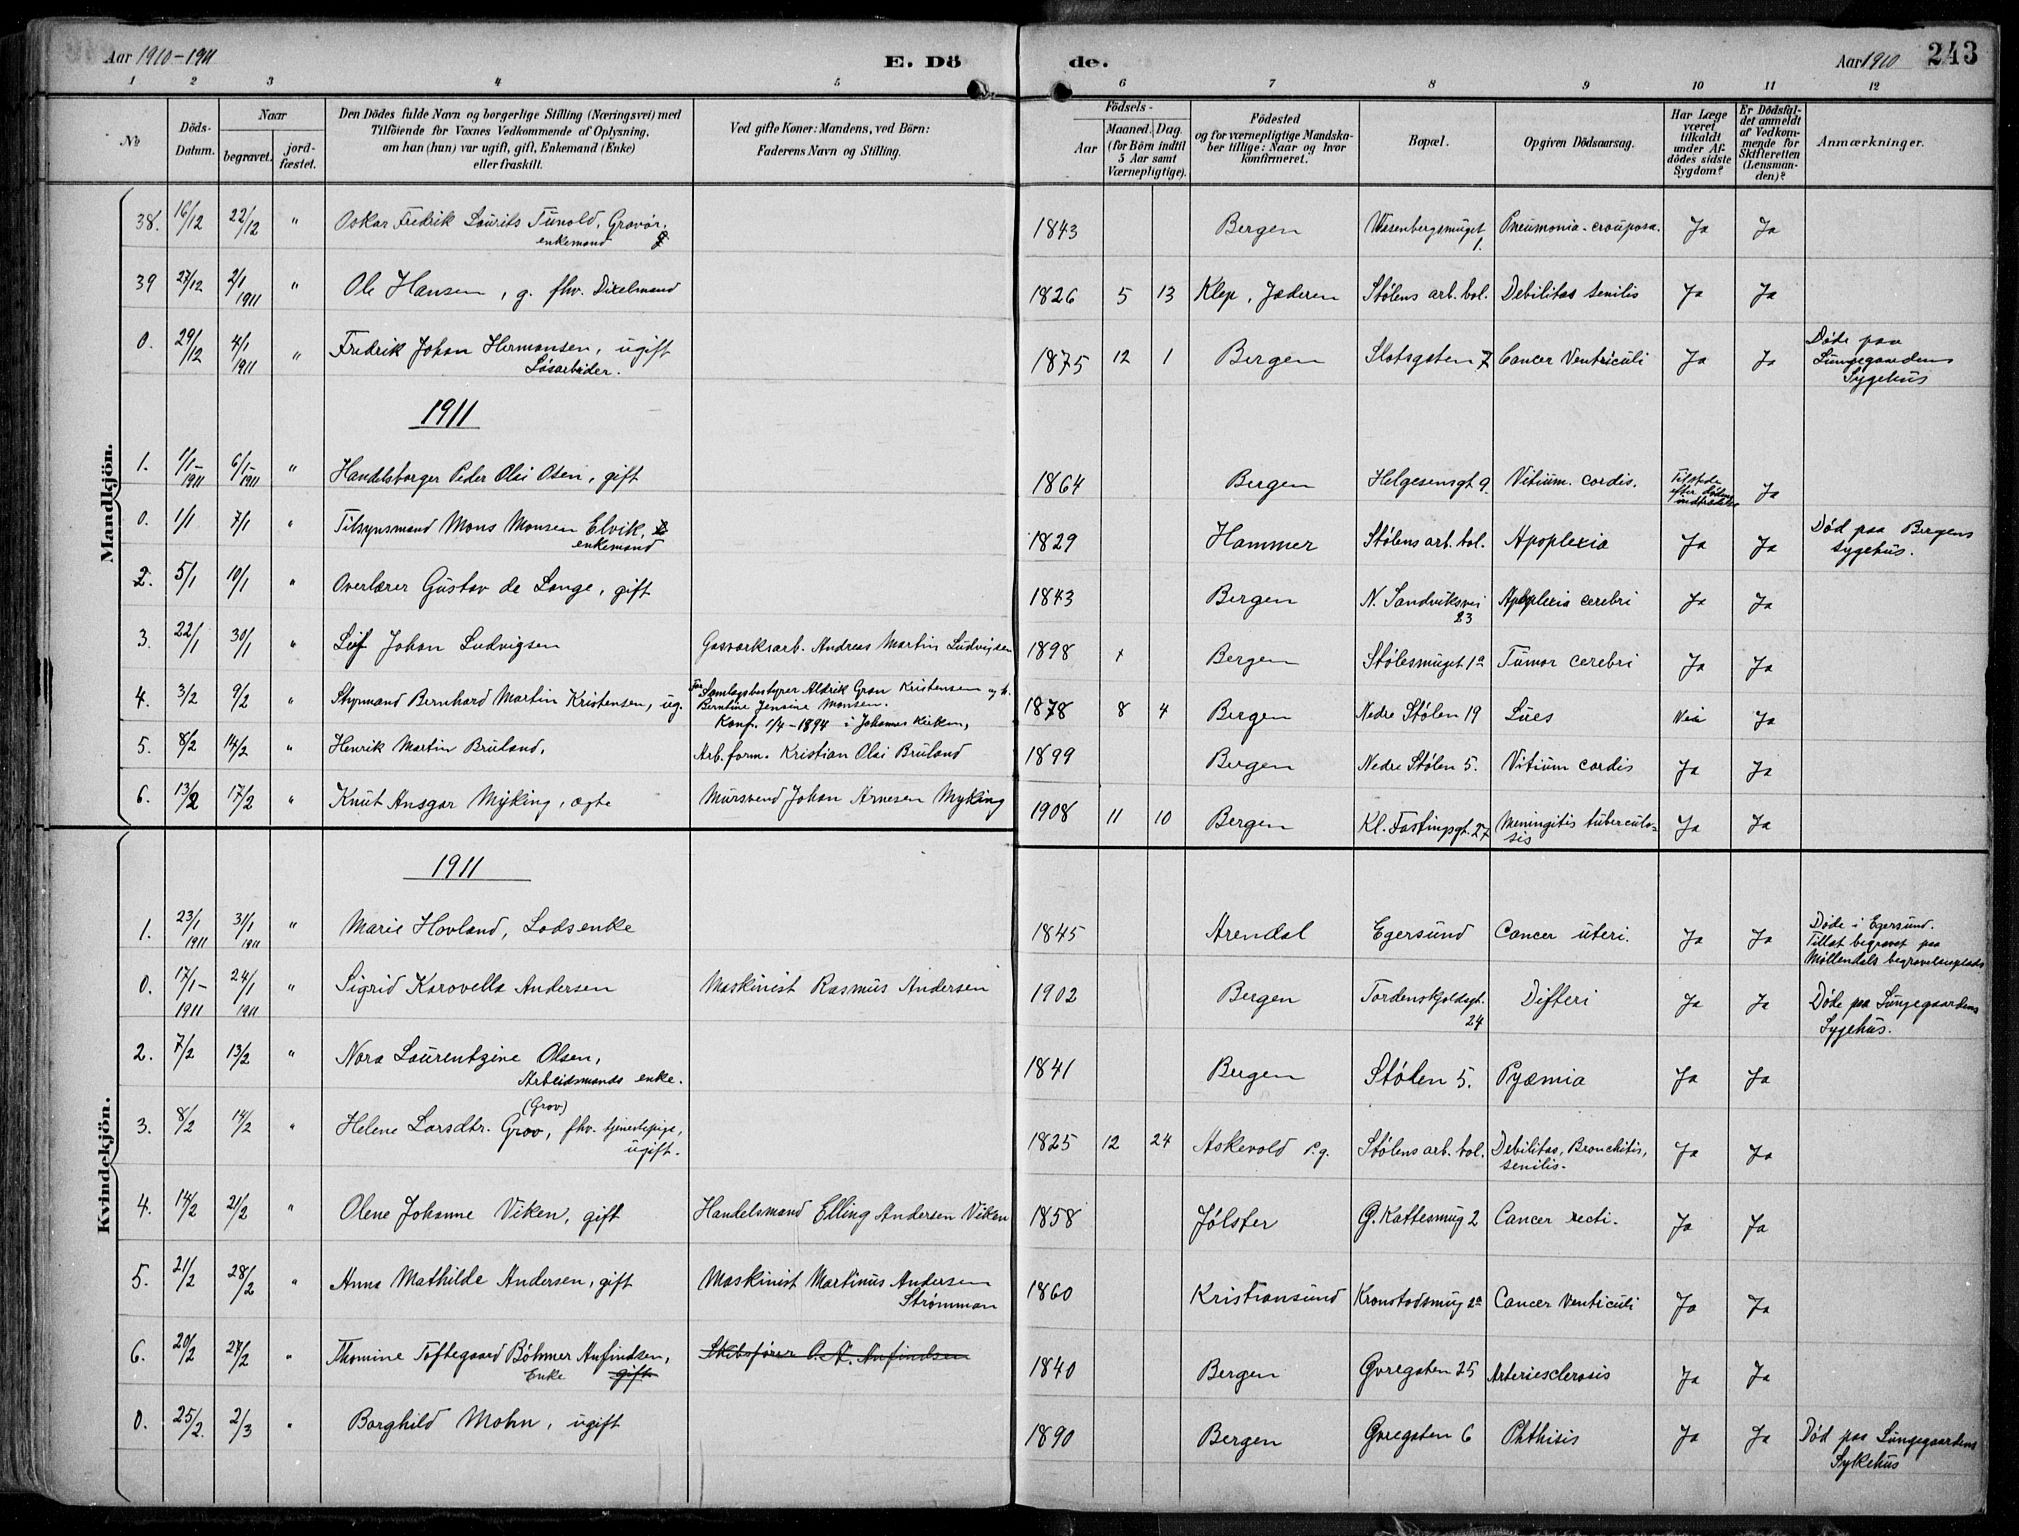 Aar 1910-1911
E. Dö
de.
Aar 1910
243
1 2 3 4 5 6 7 8 9 10 11 12
No
Döds-
Datum.
Naar
begravet.
jord-
fæstet.
Den Dödes fulde Navn og borgerlige Stilling (Næringsvei) med
Tilföiende for Voxnes Vedkommende af Oplysning,
om han (hun) var ugift, gift, Enkemand (Enke)
eller fraskilt.
Ved gifte Koner: Mandens, ved Börn:
Faderens Navn og Stilling.
Födsels-
Aar
Maaned. Dag.
(for Börn indtil
5 Aar samt
Værnepligtige).
Födested
og for værnepligtige Mandska-
ber tillige: Naar og hvor
konfirmeret.
Bopæl.
Opgiven Dödsaarsag.
Har Læge
været
tilkaldt
under Af-
dödes sidste
Sygdom?
Er Dödsfal-
det anmeldt
af Vedkom-
mende for
Skifteretten
(Lensman-
den)?
Anmærkninger.
Mandkjön.
38. 16/12 22/12 " Oskar Fredrik Laurits Tunold, Gravør, 1843 Bergen Wesenbergsmuget Pneumonia crouposa. Ja Ja
enkemand 1.
39 27/12 2/1 1911 " Ole Hansen, g. fhv. Dixelmand 1826 5 13 Klep, Jæderen Stølens arb. bol. Debilitas senilis Ja Ja
0. 29/12 4/1 1911 " Fredrik Johan Hermansen, ugift 1875 12 1 Bergen Slotsgaten 7 Cancer Ventriculi Ja Ja Døde paa
Løsarbeider. Lungegaardens
Sygehus
1911
1. 1/1-1911 6/1-1911 " Handelsborger Peder Olai Olsen, gift 1864 Bergen Helgesensgt 9. Vitium cordis. Tilstede
efter dødens
indtrædelse Ja
0. 1/1 7/1 " Tilsynsmand Mons Monsen Elvik, 1829 Hammer Stølens arb. bol. Apoplexia Ja Ja Død paa Bergens
enkemand sygehus.
2. 5/1 10/1 " Overlærer Gustav de Lange, gift 1843 Bergen N. Sandviksvei Apoplexia cerebri Ja Ja
23
3. 22/1 30/1 " Leif Johan Ludvigsen Gasværksarb. Andreas Martin Ludvigsen 1898 + Bergen Stølesmuget 1a Tumor cerebri Ja Ja
4. 3/2 9/2 " Styrmand Bernhard Martin Kristensen, ug. Far Samlagsbestyrer Aldrik Gran Kristensen og h. 1878 8 4 Bergen Nedre Stølen 19 Lues Nei Ja
Berntine Jensine Monsen.
Konf. 1/4-1894 i Johannes kirken,
5. 8/2 14/2 " Henrik Martin Bruland, Arb. form. Kristian Olai Bruland 1899 Bergen Nedre Stølen 5. Vitium cordis Ja Ja
6. 13/2 17/2 " Knut Ansgar Myking, ægte Mursvend Johan Arnesen Myking 1908 11 10 Bergen Kl. Fastingsgt. 27 Meningitis tuberculo-
sis Ja Ja
Kvindekjön.
1911
1. 23/1 1911 31/1 1911 " Marie Hovland, Lodsenke 1845 Arendal Egersund Cancer uteri. Ja Ja Døde i Egersund.
Tillat begravet paa
Møllendals begravelsesplads
0. 17/1-1911 24/1 1911 " Sigrid Karovella Andersen Maskinist Rasmus Andersen 1902 Bergen Tordenskjoldsgt. Difteri Ja Ja Døde paa Lungegaardens
24 Sygehus.
2. 7/2 13/2 " Nora Laurentzine Olsen, 1841 Bergen Stølen 5. Pyæmia Ja Ja
Arbeidsmands enke.
(Grov)
3. 8/2 14/2 " Helene Larsdtr. Grov, fhv. tjenestepige, 1825 12 24 Askevold P.g. Stølens arb. bol. Debilitas, Bronchitis, Ja Ja
ugift. senilis.
4. 14/2 21/2 " Olene Johanne Viken, gift Handelsmand Elling Andersen Viken 1858 Jølster G. Kattesmug 2 Cancer recti. Ja Ja
5. 21/2 28/2 " Anna Mathilde Andersen, gift Maskinist Martinus Andersen 1860 Kristiansund Kronstadsmug 2a Cancer Venticuli Ja Ja
Strømman
6. 20/2 27/2 " Thomine Toftegaard Bøhmer Anfindsen, Skibsfører O. A. Anfindsen 1840 Bergen Øvregaten 25 Arteriesclerosis Ja Ja
Enke gift
0. 25/2. 2/3 " Borghild Mohn, ugift 1890 Bergen Øvregaten 6 Phthisis Ja Ja Død paa Lungegaardens
Sykehus